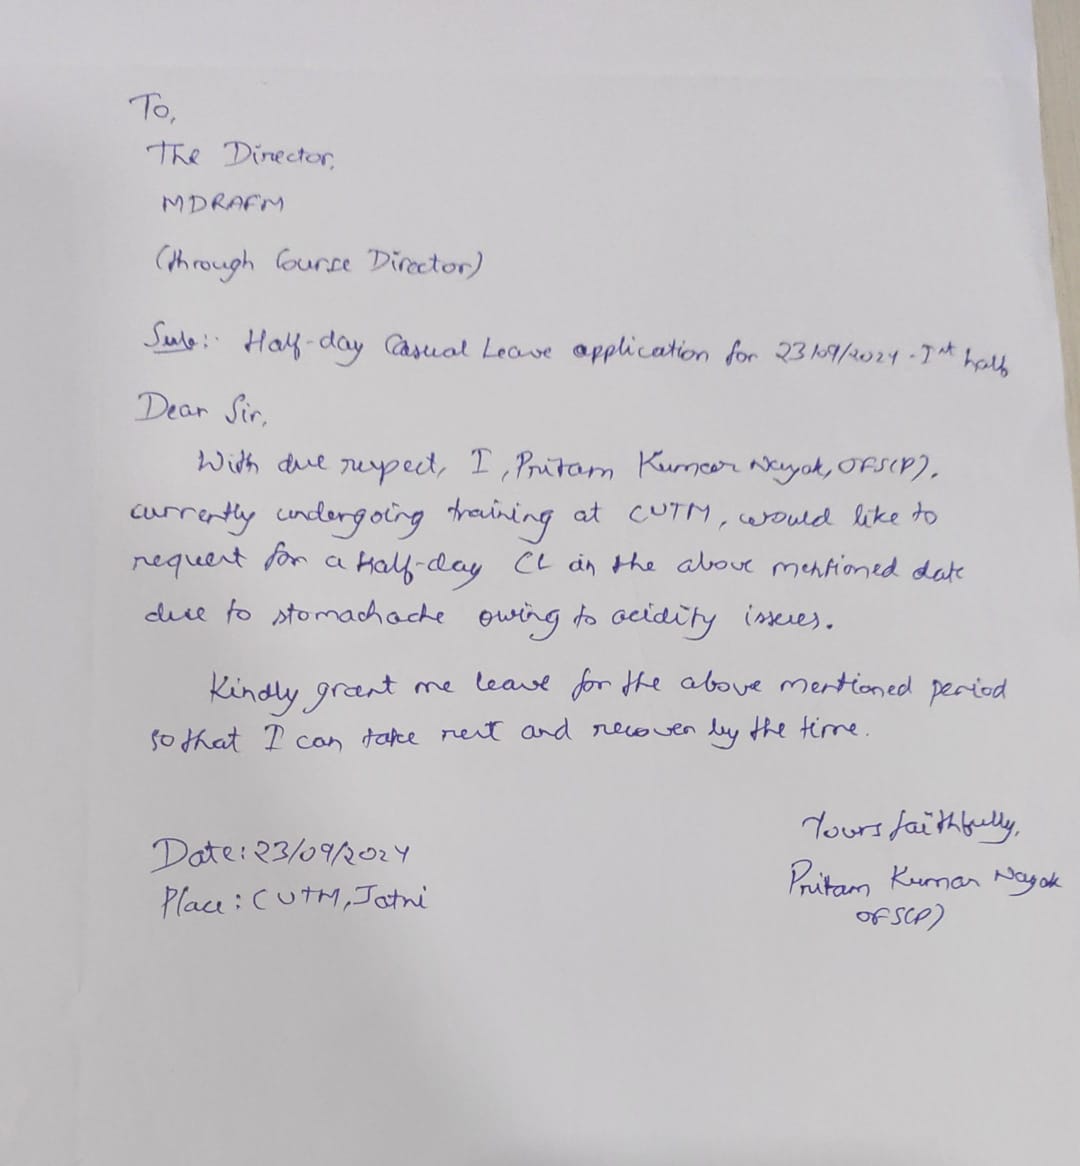 To,
The Director,
MDRAFM
(through Course Director)
Sub:- Half-day Casual Leave application for 23/09/2024 - Ist half
Dear Sir,
With due respect, I, Pritam Kumar Nayak, OFS(P),
currently undergoing training at CUTM, would like to
request for a Half-day CL in the above mentioned date
due to stomachache owing to acidity issues.
Kindly grant me leave for the above mentioned period
so that I can take rest and recover by the time.
Yours faithfully,
Date: 23/09/2024
Pritam Kumar Nayak
Place: CUTM, Jatni
OFS(P)